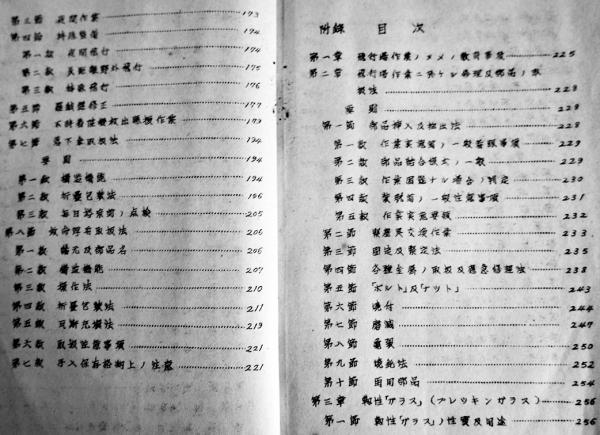 第三節 夜間作業 173
第四節 特殊整備 174
第一款 夜間飛行 174
第二款 長距離野外飛行 175
第三款 特殊飛行 176
第五節 羅針盤修正 177
第六節 不時着陸機救出運搬作業 179
第七節 落下傘取扱法 194
要則 194
第一款 構造機能 194
第二款 折畳包装法 196
第三款 毎日搭乗前ノ点検 205
第八節 救命浮衣取扱法 206
第一款 諸元及部品名 206
第二款 構造機能 207
第三款 操作法 210
第四款 折畳包装法 211
第五款 瓦斯充填法 219
第六款 取扱注意事項 221
第七款 手入保存格納上ノ注意 221
附録 目次
第一章 飛行場作業ノタメノ教育事項 225
第二章 飛行場作業ニ於ケル修理及部品ノ取
扱法 228
要則 228
第一節 部品挿入及抽出法 228
第一款 作業実施前ノ一般着眼事項 229
第二款 部品結合様式ノ一般 229
第三款 作業困難ナル場合ノ判定 230
第四款 実施前ノ一般注意事項 231
第五款 作業実施要領 232
第二節 緊塞具交換作業 233
第三節 固定及緊定法 235
第四節 各種金属ノ取扱及応急修理法 238
第五節 「ボルト」及「ナット」 243
第六節 焼付 244
第七節 磨滅 247
第八節 亀裂 250
第九節 焼鈍法 252
第十節 両用部品 254
第三章 靭性「グラス」(プレツキシガラス) 256
第一節 靭性「グラス」ノ性質及用途 256